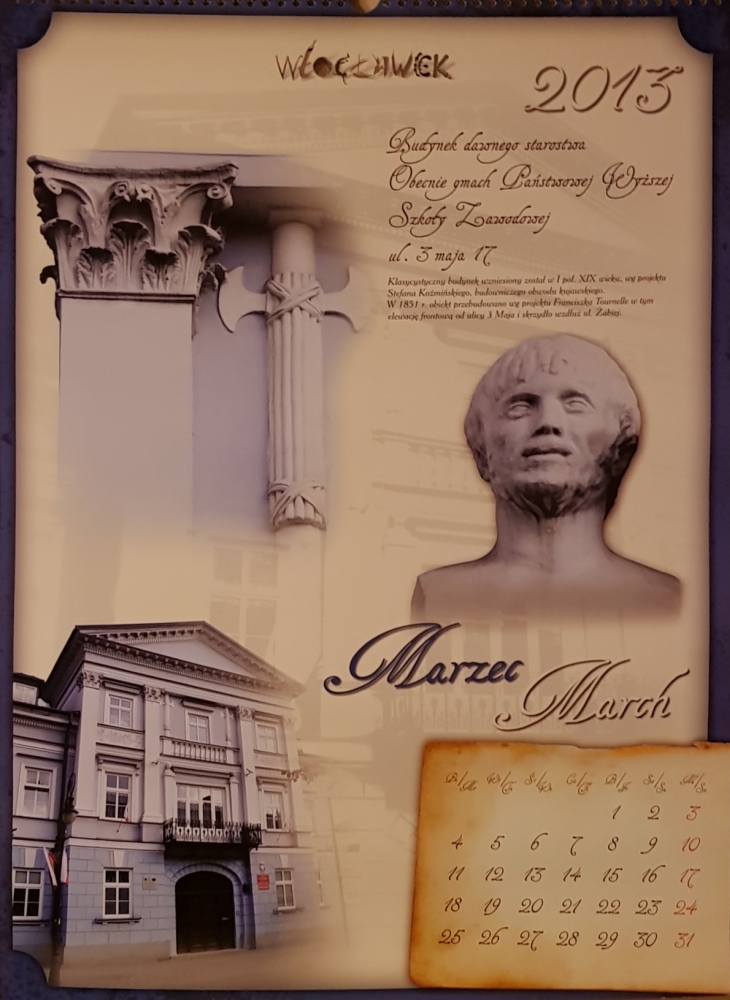 WŁOCŁAWEK
2013
Budynek dawnego starostwa
Obecnie gmach Państwowej Wyższej
Szkoły Zawodowej
ul. 3 maja 17
Klasycystyczny budynek wzniesiony został w I poł. XIX wieku, wg projektu
Stefana Koźmińskiego, budowniczego obwodu kujawskiego.
W 1851 r. obiekt przebudowano wg projektu Franciszka Tournelle w tym
elewację frontową od ulicy 3 Maja i skrzydło wzdłuż ul. Żabiej.
Marzec
March
1 2 3
4 5 6 7 8 9 10
11 12 13 14 15 16 17
18 19 20 21 22 23 24
25 26 27 28 29 30 31